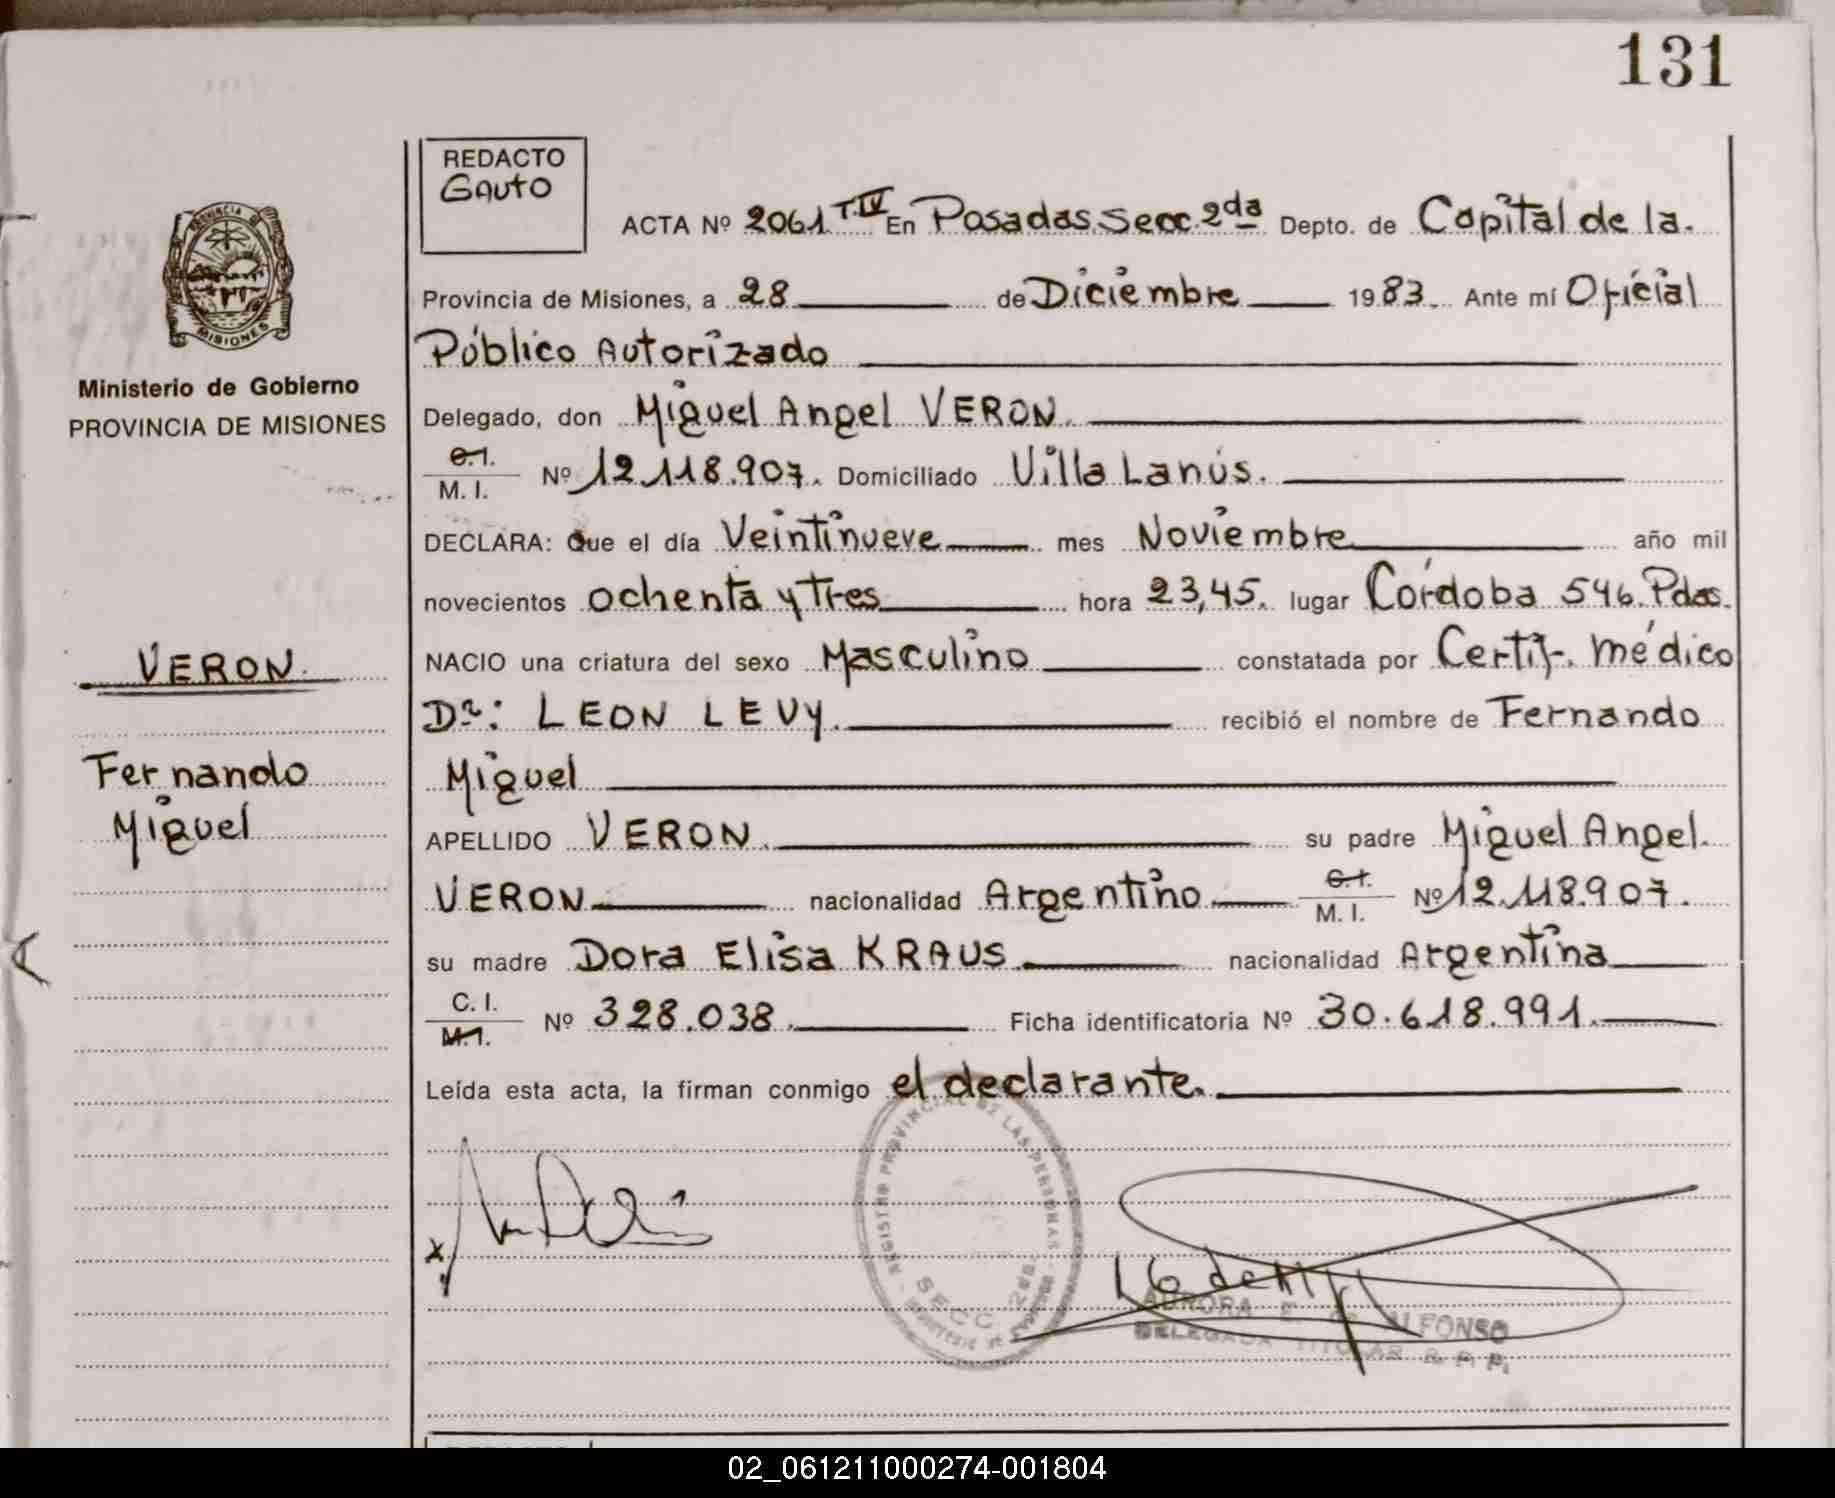 131
REDACTO
Gauto
ACTA Nº 2061 T.IV En Posadas, Secc. 2da Depto. de Capital de la.
Provincia de Misiones, a 28 de Diciembre 1983. Ante mí Oficial
Público Autorizado
PROVINCIA DE MISIONES
Ministerio de Gobierno
PROVINCIA DE MISIONES
Delegado, don Miguel Angel VERON.
C.I.
M. I. Nº 12.118.907. Domiciliado Villa Lanús.
DECLARA: Que el día Veintinueve mes Noviembre año mil
novecientos ochenta y Tres hora 23,45. lugar Córdoba 546. Pdas.
NACIO una criatura del sexo Masculino constatada por Certif. médico
Dr: LEON LEVY. recibió el nombre de Fernando
Miguel
VERON.
Fernando
Miguel
APELLIDO VERON. su padre Miguel Angel.
VERON nacionalidad Argentino C.I.
M. I. Nº 12.118.907.
su madre Dora Elisa KRAUS. nacionalidad Argentina
C. I.
M.I. Nº 328.038. Ficha identificatoria Nº 30.618.991.
Leída esta acta, la firman conmigo el declarante.
REGISTRO PROVINCIAL DE LAS PERSONAS
SECC. 2da.
x
AURORA E. de ALFONSO
DELEGADA TITULAR R. P. P.
02_061211000274-001804